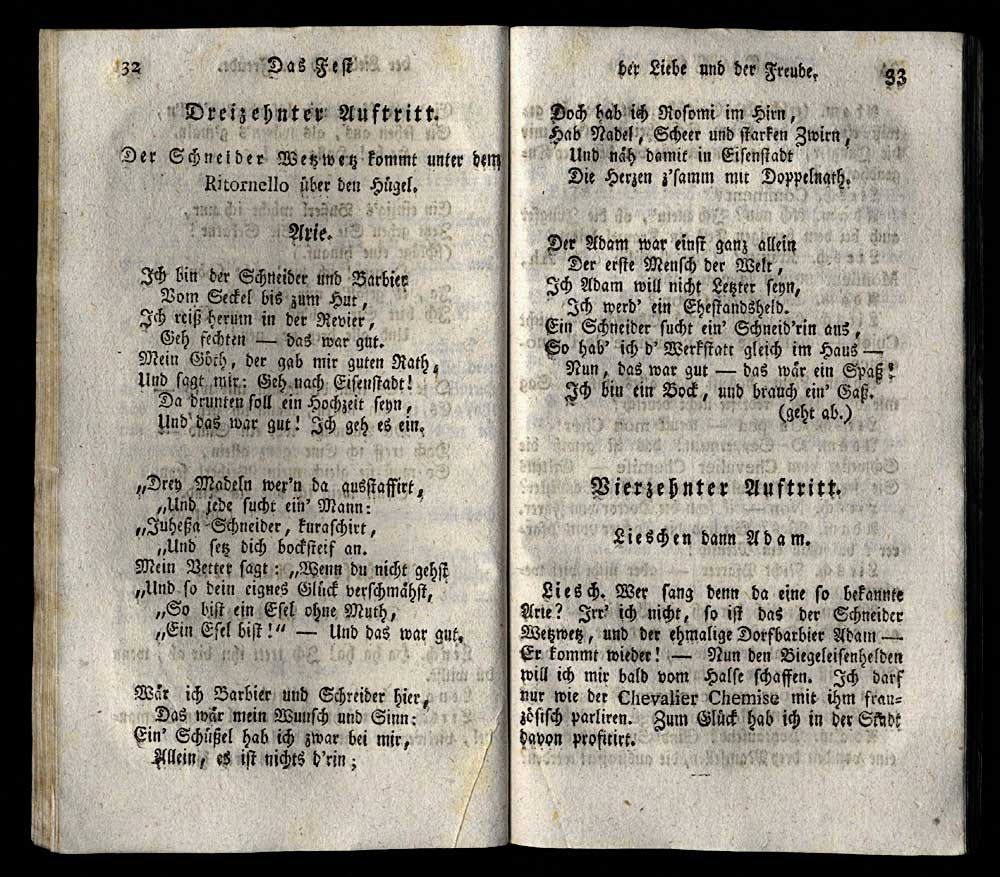 32 Das Fest
Dreizehnter Auftritt.
Der Schneider Wetzwetz kommt unter dem
Ritornello über den Hügel.
Arie.
Ich bin der Schneider und Barbier
Vom Seckel bis zum Hut,
Ich reiß herum in der Revier,
Geh fechten — das war gut.
Mein Göth, der gab mir guten Rath,
Und sagt mir: Geh nach Eisenstadt!
Da drunten soll ein Hochzeit seyn,
Und das war gut! Ich geh es ein.
„Drey Madeln wer'n da ausstaffirt,
„Und jede sucht ein' Mann:
„Juheßa Schneider, kuraschirt,
„Und setz dich bocksteif an.
Mein Vetter sagt: „Wenn du nicht gehst
„Und so dein eignes Glück verschmähst,
„So bist ein Esel ohne Muth,
„Ein Esel bist!“ — Und das war gut.
Wär ich Barbier und Schreider hier,
Das wär mein Wunsch und Sinn:
Ein' Schüßel hab ich zwar bei mir,
Allein, es ist nichts d'rin;
der Liebe und der Freude. 33
Doch hab ich Rosomi im Hirn,
Hab Nadel, Scheer und starken Zwirn,
Und näh damit in Eisenstadt
Die Herzen z'samm mit Doppelnath.
Der Adam war einst ganz allein
Der erste Mensch der Welt,
Ich Adam will nicht Letzter seyn,
Ich werd' ein Ehestandsheld.
Ein Schneider sucht ein' Schneid'rin aus,
So hab' ich d' Werkstatt gleich im Haus —
Nun, das war gut — das wär ein Spaß!
Ich bin ein Bock, und brauch ein' Gaß.
(geht ab.)
Vierzehnter Auftritt.
Lieschen dann Adam.
Liesch. Wer sang denn da eine so bekannte
Arie? Irr' ich nicht, so ist das der Schneider
Wetzwetz, und der ehmalige Dorfbarbier Adam —
Er kommt wieder! — Nun den Biegeleisenhelden
will ich mir bald vom Halse schaffen. Ich darf
nur wie der Chevalier Chemise mit ihm fran-
zösisch parliren. Zum Glück hab ich in der Stadt
davon profitirt.